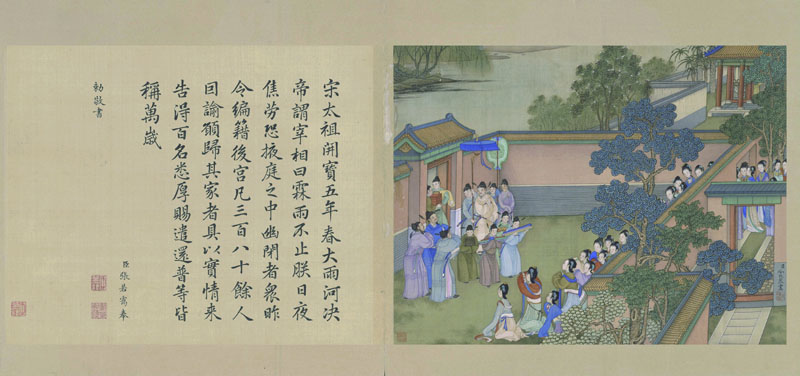 宋太祖開寶五年春大雨河決
帝謂宰相曰霖雨不止朕日夜
焦勞恐掖庭之中幽閉者衆昨
令編籍後宮凡三百八十餘人
因諭願歸其家者具以實情来
告得百名悉厚賜遣還普等皆
稱萬歲
臣張若靄奉
勅敬書